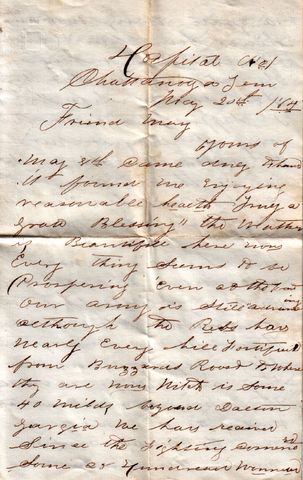 Hospital No 1
Chattanooga Tenn
May 20th
Friend May
Yours of
May 8th came duly to hand
it found me Enjoying
reasonable health Truly a
great Blessing" the Weather
is Beautiful here now
Every thing Seems to be
Prospering Even at the
Our army is Still
although the Rebs has
nearly Every hill Fortified
from Buzzards Roost to Where
they are now Witch is Some
40 milds beyond Dalton
Gargia We has received
Since the Fighting
Some 25 Hundred Wounded